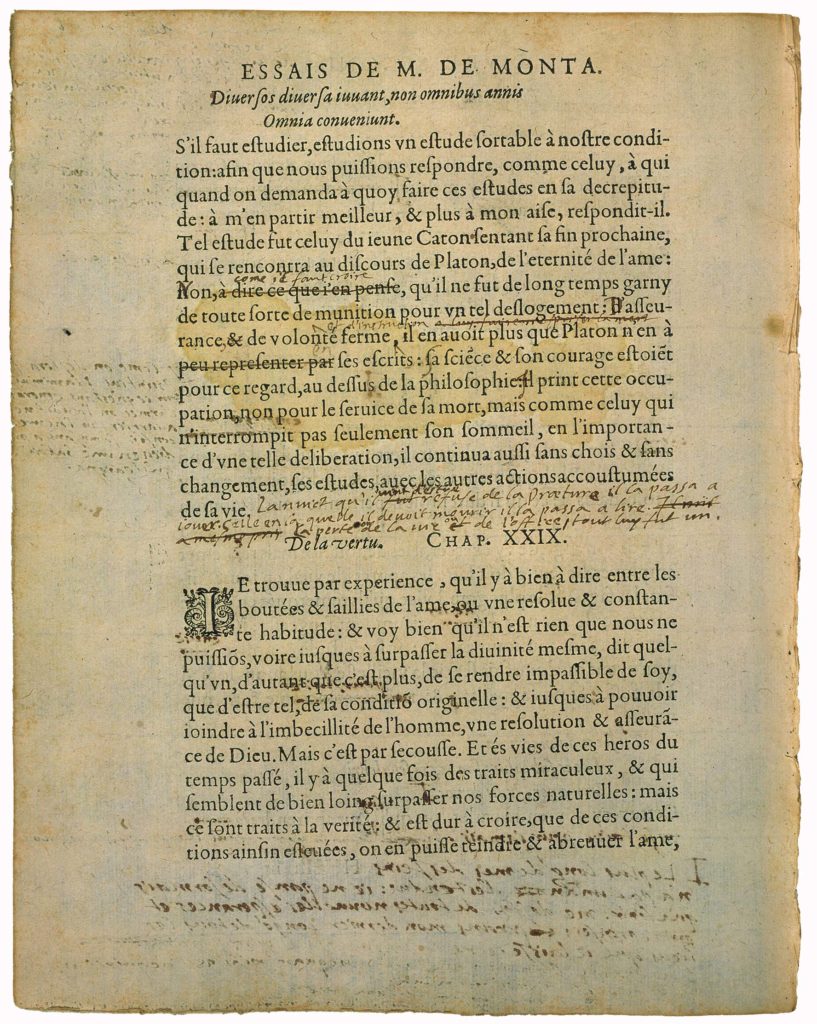 ESSAIS DE M. DE MONTA.
Diuersos diuersa iuuant, non omnibus annis
Omnia conueniunt.
S'il faut eſtudier, eſtudions vn eſtude ſortable à noſtre condi-
tion: afin que nous puiſſions reſpondre, comme celuy, à qui
quand on demanda à quoy faire ces eſtudes en ſa decrepitu-
de: à m'en partir meilleur, & plus à mon aiſe, reſpondit-il.
Tel eſtude fut celuy du ieune Caton ſentant ſa fin prochaine,
qui ſe rencontra au diſcours de Platon, de l'eternité de l'ame:
come il faut croire
Non, à dire ce que i'en penſe, qu'il ne fut de long temps garny
de toute ſorte de munition pour vn tel deſlogement: D'aſſeu-
et d'instruction
rance, & de volonté ferme, il en auoit plus que Platon n'en à
peu repreſenter par ſes eſcrits: ſa ſciẽce & ſon courage eſtoiẽt
pour ce regard, au deſſus de la philoſophie. Il print cette occu-
pation, non pour le ſeruice de ſa mort, mais comme celuy qui
n'interrompit pas ſeulement ſon ſommeil, en l'importan-
ce d'vne telle deliberation, il continua auſſi ſans chois & ſans
changement, ſes eſtudes, auec les autres actions accouſtumées
de ſa vie. La nuict qu'il fut refuse de la Præture il la passa a
iouer. Celle en la quelle il devoit mourir il la passa a lire.
la perte de la vie ou de l'office tout luy fut un.
De la vertu. CHAP. XXIX.
IE trouue par experience, qu'il y à bien à dire entre les
boutées & ſaillies de l'ame, ou vne reſolue & conſtan-
te habitude: & voy bien qu'il n'eſt rien que nous ne
puiſſiõs, voire iuſques à ſurpaſſer la diuinité meſme, dit quel-
qu'vn, d'autant que c'eſt plus, de ſe rendre impaſſible de ſoy,
que d'eſtre tel, de ſa conditiõ originelle: & iuſques à pouuoir
ioindre à l'imbecillité de l'homme, vne reſolution & aſſeurã-
ce de Dieu. Mais c'eſt par ſecouſſe. Et és vies de ces heros du
temps paſſé, il y à quelque fois des traits miraculeux, & qui
ſemblent de bien loing ſurpaſſer nos forces naturelles: mais
ce ſont traits à la verité: & eſt dur à croire, que de ces condi-
tions ainſin eſleuées, on en puiſſe teindre & abreuuer l'ame,